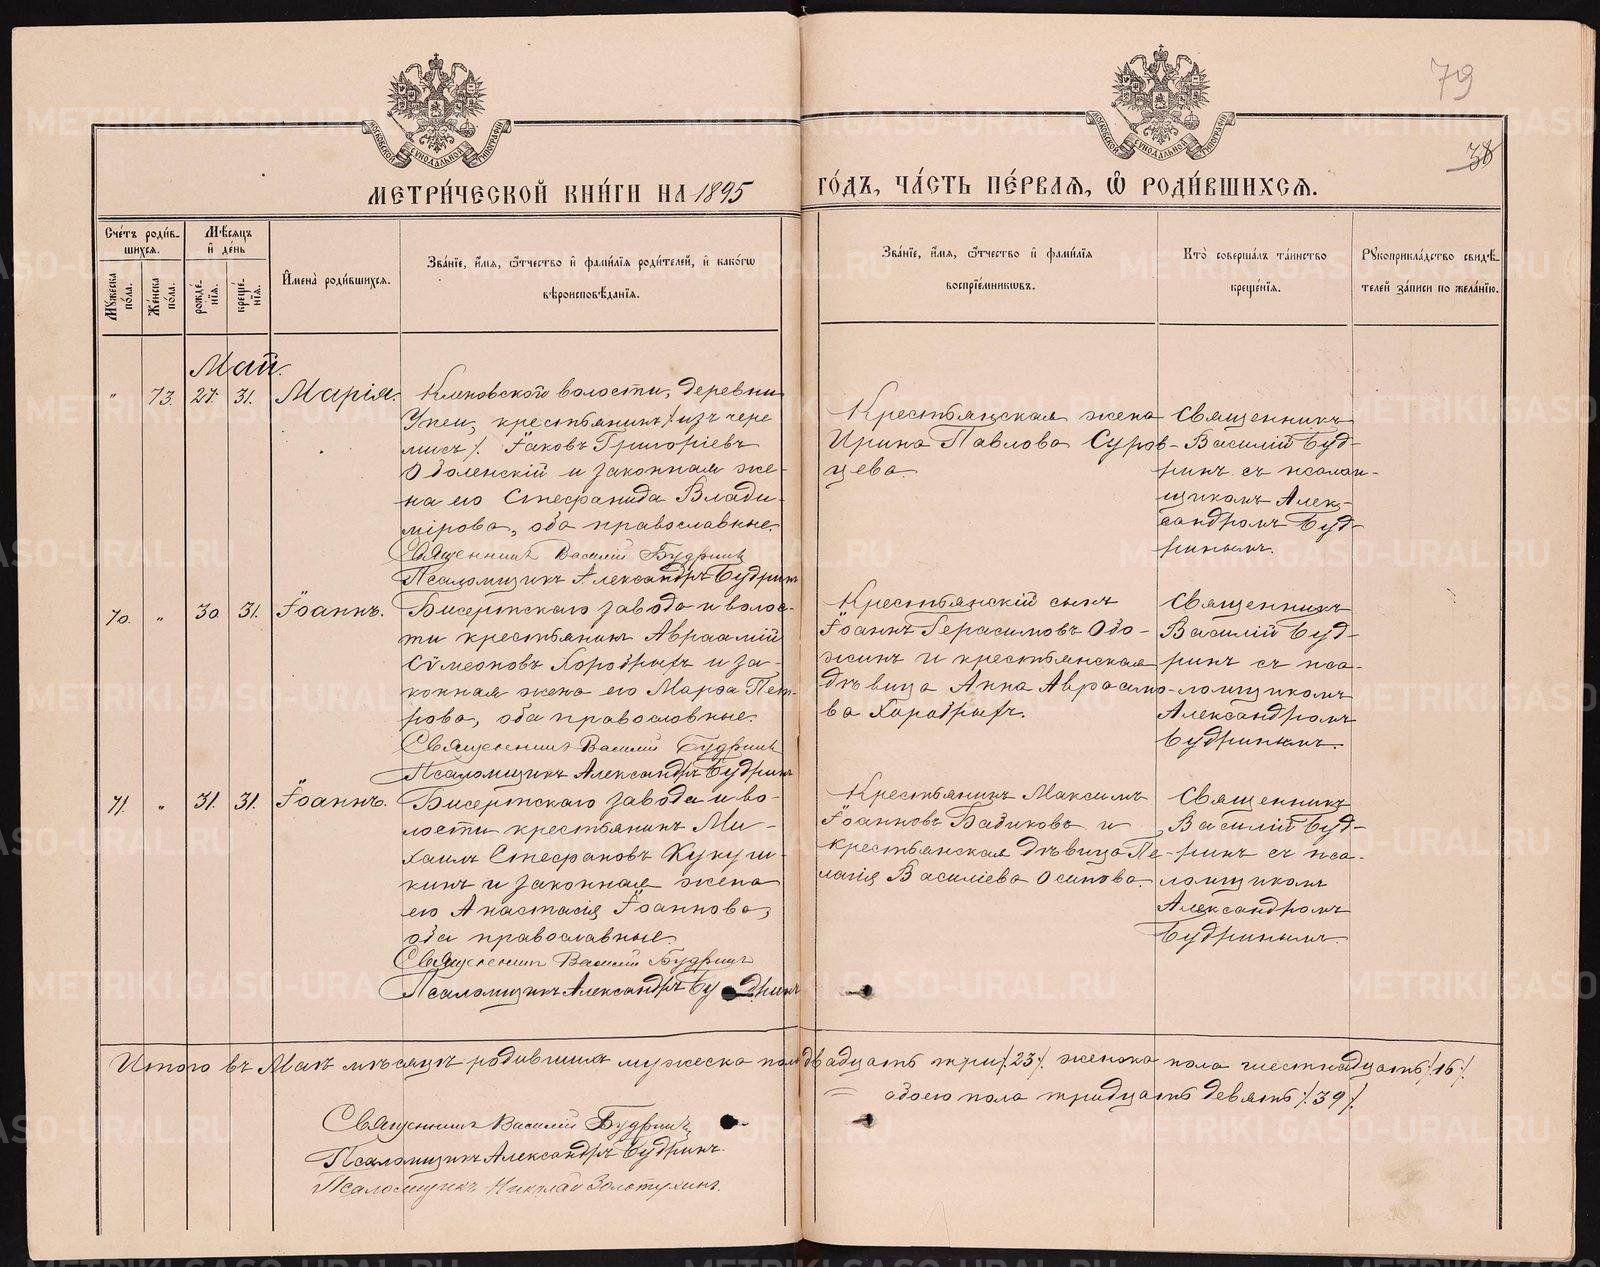 79
38
МОСКОВСКОЙ СѴНОДАЛЬНОЙ ТИПОГРАФІИ
МОСКОВСКОЙ СѴНОДАЛЬНОЙ ТИПОГРАФІИ
МЕТРИ́ЧЕСКОЙ КНИ́ГИ НА 1895 ГО́ДЪ, ЧА́СТЬ ПЕ́РВАѦ, Ѡ҆ РОДИ́ВШИХСѦ.
Сче́тъ роди́в-
шихсѧ.
Мꙋжеска по́ла.
Же́нска по́ла.
Мѣ́сѧцъ
и҆ де́нь
рожде́-
нїѧ.
креще́-
нїѧ.
И҆мена̀ роди́вшихсѧ.
Зва́нїе, и҆́мѧ, ѻ҆́тчество и҆ фами́лїѧ роди́телей, и҆ како́гѡ
вѣроисповѣ́данїѧ.
Зва́нїе, и҆́мѧ, ѻ҆́тчество и҆ фами́лїѧ
воспрїе́мникѡвъ.
Кто̀ соверша́лъ та́инство
креще́нїѧ.
Рꙋкоприкла́дство свидѣ́-
телей за́писи по жела́нїю.
Май.
" 73. 27. 31. Марія.
Кленовской волости, деревни
Упеи, крестьянинъ /изъ чере
мисъ/. Іаковъ Григоріевъ
Оболенскій и законная же-
на его Стефанида Влади-
мірова, оба православные.
Священникъ Василій Будринъ
Псаломщикъ Александръ Будринъ
Крестьянская жена
Ирина Павлова Суров-
цева.
Священникъ
Василій Буд-
ринъ съ псалом-
щикомъ Алек-
сандромъ Буд-
ринымъ.
70. " 30. 31. Іоаннъ.
Бисертскаго завода и волос-
ти крестьянинъ Авраамій
Сѵмеоновъ Хоробрыхъ и за-
конная жена его Марѳа Пет-
рова, оба православные.
Священникъ Василій Будринъ
Псаломщикъ Александръ Будринъ
Крестьянскій сынъ
Іоаннъ Герасимовъ
и крестьянская
дѣвица Анна Авраамо-
ва Хоробрыхъ.
Священникъ
Василій Буд-
ринъ съ пса-
ломщикомъ
Александромъ
Будринымъ.
71. " 31. 31. Іоаннъ.
Бисертскаго завода и во-
лости крестьянинъ Ми-
хаилъ Стефановъ Кукуш-
кинъ и законная жена
его Анастасія Іоаннова,
оба православные.
Священникъ Василій Будринъ
Псаломщикъ Александръ Будринъ
Крестьянинъ Максимъ
Іоанновъ Бабиковъ и
крестьянская дѣвица Пе-
лагія Василіева Осипова.
Священникъ
Василій Буд-
ринъ съ пса-
ломщикомъ
Александромъ
Будринымъ.
Итого въ Маѣ мѣсяцѣ родившихъ мужеска пола двадцать три /23/. женска пола шестнадцать /16/.
— обоего пола тридцать девять /39/.
Священникъ Василій Будринъ
Псаломщикъ Александръ Будринъ.
Псаломщикъ Николай Золотухинъ.
METRIKI.GASO-URAL.RU